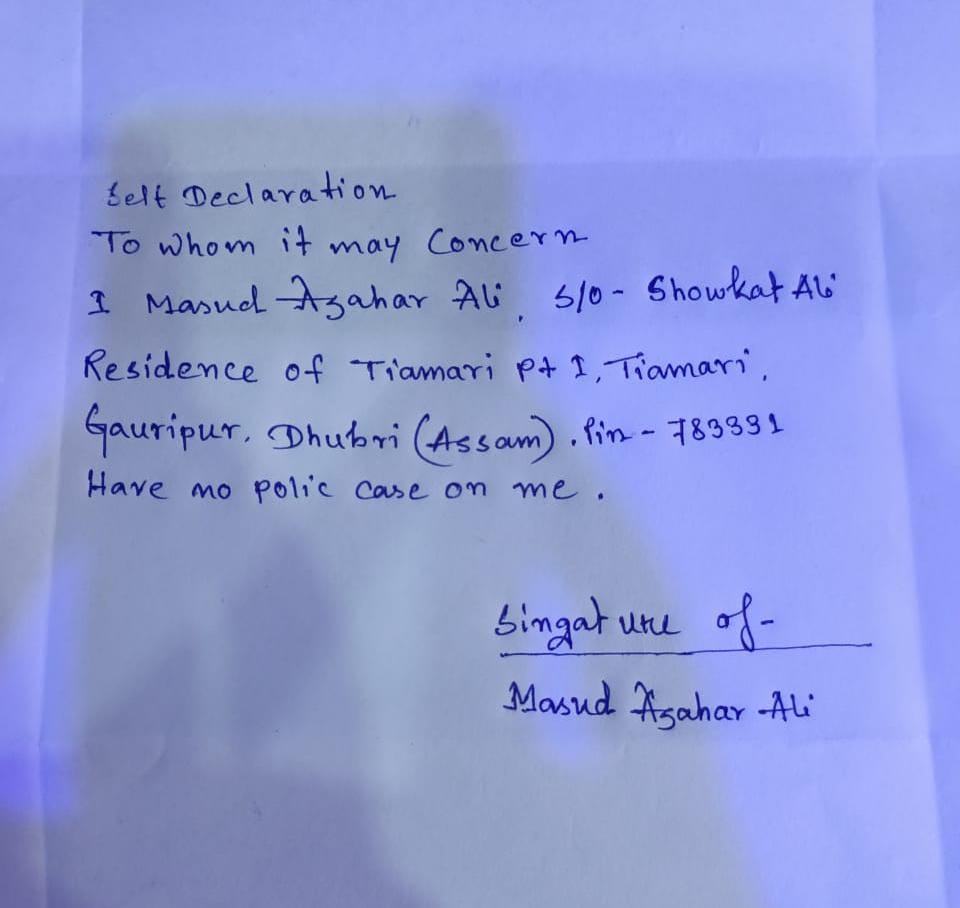 Self Declaration
To whom it may Concern
I Masud Azahar Ali, S/O - Showkat Ali
Residence of Tiamari pt I, Tiamari,
Gauripur, Dhubri (Assam). Pin - 783331
Have no polic case on me.
Singature of-
Masud Azahar Ali